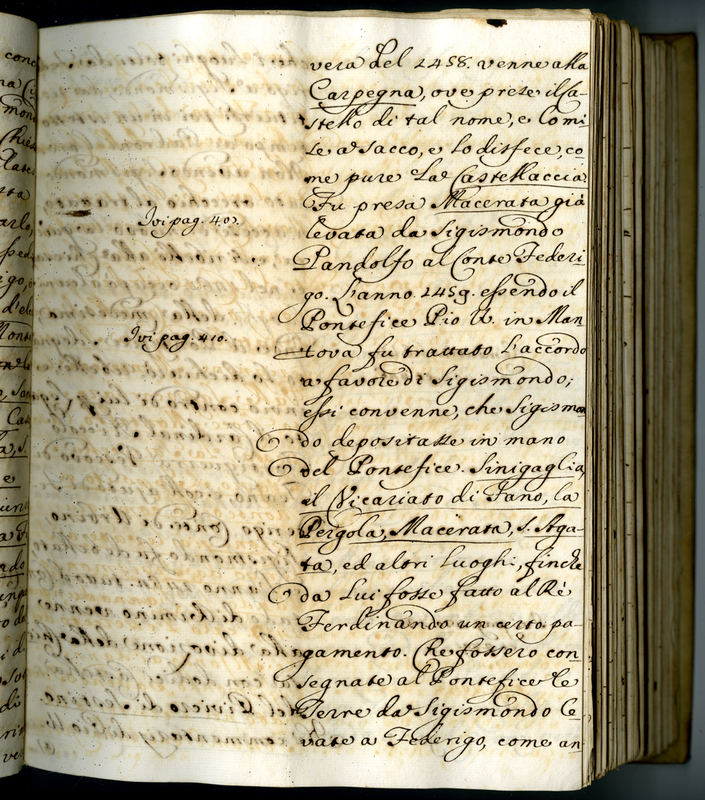 vera del 1458. venne alla
Carpegna, ove prese il Ca-
stello di tal nome, e lo mi
se a sacco, e lo disfece, co
me pure la Castellaccia
Fu presa Macerata già
Ivi pag. 40
levata da Sigismondo
Pandolfo al Conte Federi
go. L'anno 1459. essendo il
Pontefice Pio II. in Man
Ivi pag. 410.
tova fu trattato l'accordo
a favore di Sigismondo;
essi convenne, che Sigismon
do depositasse in mano
del Pontefice. Sinigaglia
il Vicariato di Fano, la
Pergola, Macerata, S. Aga-
ta, ed altri luoghi, finche
da Lui fosse fatto al Rè
Ferdinando un certo pa-
gamento. Che fossero con
segnate al Pontefice le
Terre da Sigismondo le
vate a Federigo, come an